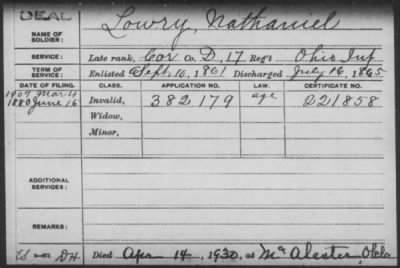 DEAD
NAME OF SOLDIER: Lowry, Nathaniel
SERVICE: Late rank, Cor Co. D, 17 Reg't Ohio Inf
TERM OF SERVICE: Enlisted Sept. 10, 1861 Discharged July 16, 1865
DATE OF FILING. CLASS. APPLICATION NO. LAW. CERTIFICATE NO.
1907 Mar 4 age
1880 June 16 Invalid, 382179 221858
Widow,
Minor,
ADDITIONAL SERVICES:
REMARKS:
DH. Died Apr 14, 1930, at McAlester, Okla